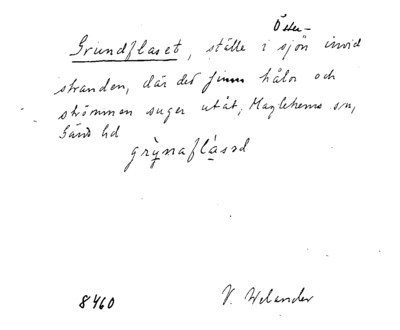 Öster-
Grundflaset, ställe i sjön invid
stranden, där det finns hålor och
strömmen suger utåt, Maglehems sn,
Gärds hd
8460 V. Welander